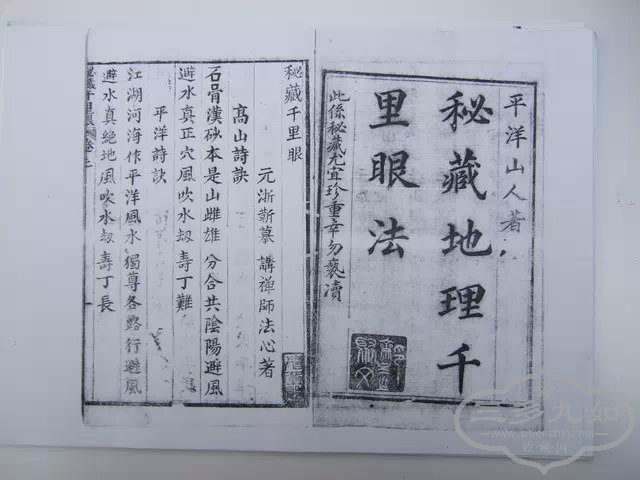 平洋山人著
秘藏地理千
里眼法
此係秘藏尤宜珍重幸勿褻瀆
秘藏千里眼
元浙蘄摹 講禪師法心著
高山詩訣
石骨漢砂本是山雌雄 分合共陰陽避風
避水真正穴風吹水刼 壽丁難
平洋詩訣
江湖河海作平洋風水 獨尊各路行避風
避水真絕地風吹水刼 壽丁長
三多九如